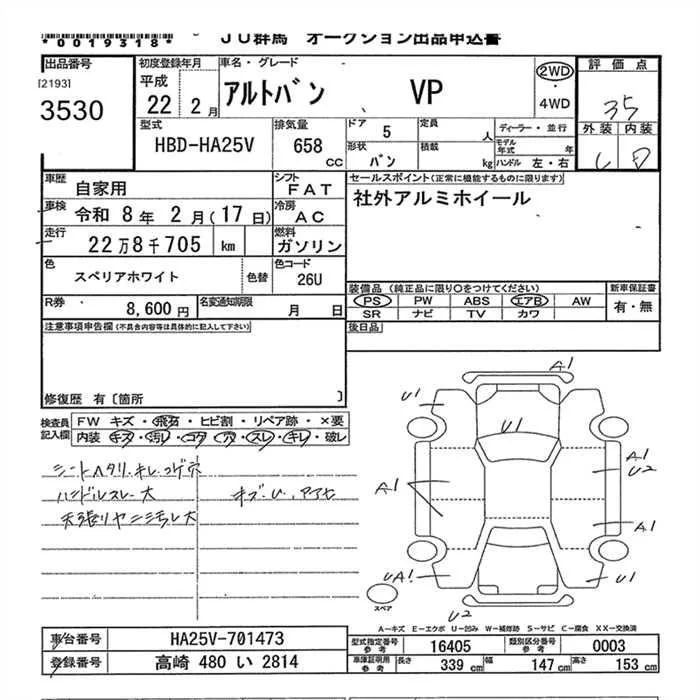 *0019318*
JU群馬 オークション出品申込書
出品番号 初度登録年月 車名・グレード 評価点
[2193]
3530
平成 22年 2月 アルトバン VP 2WD ・ 4WD
35
外装 内装
C D
型式 HBD-HA25V 排気量 658 CC ドア 5 定員 人 ディーラー・並行
形状 バン 積載 kg モデル年式 年 ハンドル 左・右
車歴 自家用 シフト FAT
セールスポイント(正常に機能するものに限ります)
社外アルミホイール
車検 令和 8年 2月(17日) 冷房 AC
走行 22万8千705 km 燃料 ガソリン
色 スペリアホワイト 色替 色コード 26U
装備品(純正品に限り○をつけてください) 新車保証書
PS PW ABS エアB AW 有・無
SR ナビ TV カワ
R券 8,600円 名変通知期限 月 日
後日品
注意事項申告欄(不具合内容等は具体的に記入して下さい)
修復歴 有〔箇所 〕
検査員記入欄 FW キズ・飛石・ヒビ割・リペア跡・×要
内装 キズ・汚レ・コゲ・穴・スレ・キレ・破レ
シートヘタリ.キレ.コゲ穴
ハンドルスレ大
天張りヤニ汚レ大
キズ・U.アアセ
A1
U1
U1
A1
U2
A1
A1
UA1
U1
U2
スペア
A－キズ E－エクボ U－凹み W－補修跡 S－サビ C－腐食 XX－交換済
車台番号 HA25V-701473 型式指定番号 参考 16405 類別区分番号 参考 0003
登録番号 高崎 480 い 2814 車庫証明用 参考 長さ 339 cm 幅 147 cm 高さ 153 cm